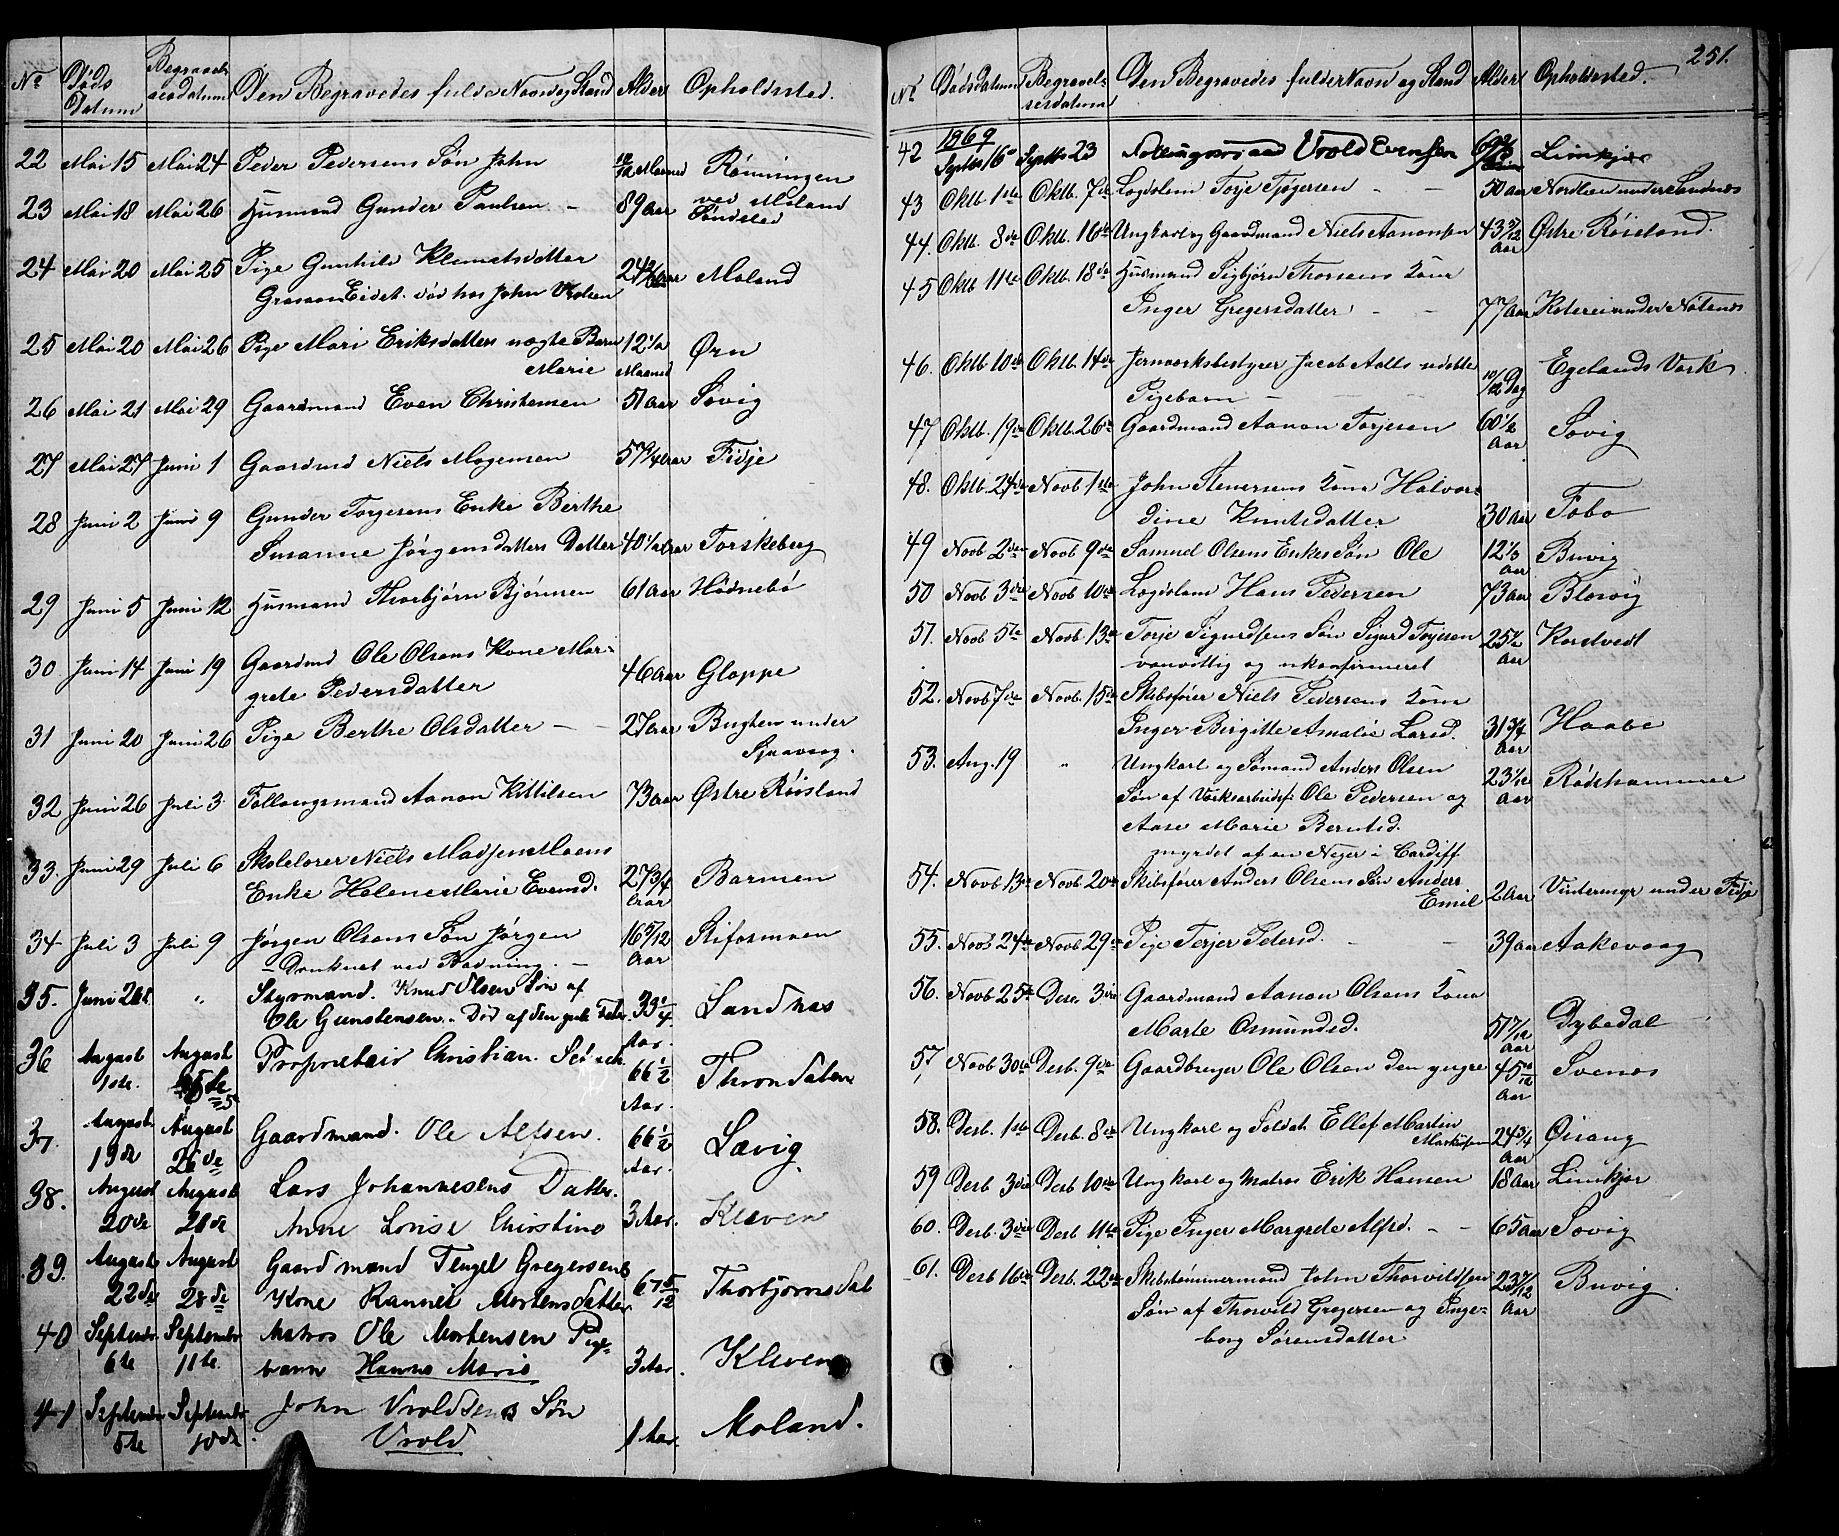 No Døds Datum Begravelsesdatum Den Begravedes fulde Navn og Stand Alder Opholdssted.
22 Mai 15 Mai 24 Peder Pedersens Søn John Maaned Rønningen ved Moland
23 Mai 18 Mai 26 Husmand Gunder Paulsen - 89 Aar Sundsted
24 Mai 20 Mai 25 Pige Gunhild Klemetsdatter
Eidet. død hos John Vrolsen 24 Aar Moland
25 Mai 20 Mai 26 Pige Mari Eriksdatters uægte Barn
Marie 12 1/2 Maaned Ørn
26 Mai 21 Mai 29 Gaardmand Even Christensen 51 Aar Søvig
27 Mai 27 Juni 1 Gaardmd Niels Mogensen 57 3/4 Aar Fidje
28 Juni 2 Juni 9 Gunder Torgersens Enke Berthe
Susanne Jørgensdatters Datter 40 1/2 Aar Torskeberg
29 Juni 5 Juni 12 Husmand Thorbjørn Bjørnsen 61 Aar Hødnebø
30 Juni 14 Juni 19 Gaardmd Ole Olsens Kone Mar-
grete Pedersdatter 46 Aar Gloppe
31 Juni 20 Juni 26 Pige Berthe Olsdatter - - 27 Aar Bugten under
Sjaavaag.
32 Juni 26 Juli 3 Follaugsmand Aanon Kittilsen 73 Aar Østre Røisland
33. Juni 29 Juli 6 Skolelærer Niels Madsen Moens
Enke Helene Marie Evensd. 27 3/4 Aar Barmen
34 Juli 3 Juli 9 Jørgen Olsens Søn Jørgen 16 5/12 Aar Rifosmoen
- Druknet ved Badning. -
35. Juni 21st " Styrmand. Knud Olsen Søn af
Ole Gunstensen. Død af den gule Feber. 33 1/4 Aar. Sandnæs
36 August 1ste. August 5te Proprietair Christian 66 1/2 Aar. Throndalen
37. August 19de August 26de Gaardmand. Ole Alfsen. 66 1/2 Aar. Søvig
38. August 20de August 28de Lars Johannesens Datter.
Anne Lovise Christine 3 Aar. Kleven
39. August 22de August 28de Gaardmand Tengel Gregersens
Kone Rannei Mortensdatter 67 5/12 Thorbjørnsdal
40 September 6te September 11te. Matros Ole Mortensen Pige-
barn Hanna Marie 3 Aar. Kleven
41 September 5te September 10de John Vroldsens Søn
Vrold 1 Aar. Moland.
251.
No Dødsdatum Begravelsesdatum Den Begravedes fulde Navn og Stand Alder Opholdssted.
1869
42 Septbr 16 Septbr 23 Vrold Evensen Limkjær
43 Oktb. 1ste Oktb. 7de Lægdslem Torje Tjøgersen - - 50 Aar Nordlien under Sandnæs
44. Oktb. 8de Oktb. 16de Ungkarl og Gaardmand Niels Aanonsen 43 5/12 Aar Østre Røisland.
45 Oktb 11te Oktb. 18de Husmand Sigbjørn Thorsens Kone
Inger Gregersdatter - - 77 Aar under Nøtenes
46. Oktb 10de Oktb. 14de Jernværksbestyrer Jacob Aalls udøbte
Pigebarn - 10/12 Dag Egelands Værk
47 Oktb. 19de Oktb. 26de Gaardmand Aanon Torjesen 60 1/2 Aar Søvig
48. Oktb. 24de Novb 1ste John Stenersens Kone Halvor-
dine Knutsdatter 30 Aar Fobo
49 Novb 2den Novb 9de Samuel Olsens Enkes Søn Ole 12 1/3 Aar Buvig
50 Novb 3die Novb 10de Lægdslem Hans Pedersen 73 Aar Blesvig
51. Novb 5te Novb 13de Torje Sigurdsens Søn Sigurd Torjesen
vanvittig og ukonfirmeret 25 1/2 Aar
52. Novb 7de Novb. 15de Skibsfører Niels Pedersens Kone
Inger Birgitte Amalie Larsd. 31 3/4 Aar Haabe
53. Aug. 19 " Ungkarl og Sømand Anders Olsen
Søn af Værksarbeider Ole Pedersen og
Aase Marie Berntsd.
myrdet af en Neger i Cardiff 23 1/12 Aar Rødshammer
54. Novb 13de Novb 20de Skibsfører Anders Olsens Søn Anders
Emil 2 Aar Vintermyr under Fidje
55. Novb 24de Novb 29de Pige Terjer Pedersd. - - 39 Aar Aakevaag
56. Novb 25de Desb. 3die Gaardmand Aanon Olsens Kone
Marte Osmundsd. 51 7/12 Aar Dybedal
57 Novb 30te Desb. 9de Gaardbruger Ole Olsen den yngre 45 10/12 Aar Svenæs
58. Desb. 1ste Desb. 8de Ungkarl og Soldat Ellef Martin
Markussen 24 3/4 Aar Øirang
59 Desb 3die Desb 10de Ungkarl og Matros Erik Hansen 18 Aar Limkjær
60. Desb. 3die Desb 11te Pige Inger Margrete Alfsd. - - 65 Aar Søvig
61. Desb 16de Desb. 22de Skibstømmermand John Thorvildsen
Søn af Thorvild Gregersen og Inge-
borg Sørensdatter 23 7/12 Aar Buvig.